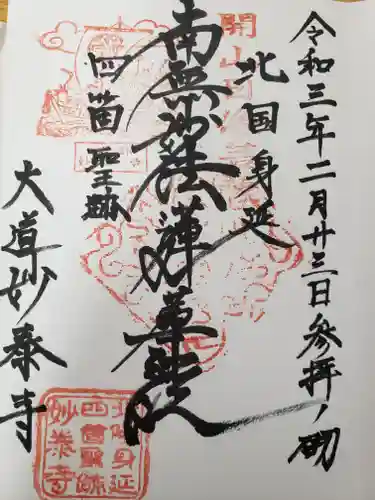 令和三年二月廿三日参拝ノ砌
北国身延
南無妙法蓮華経
四箇聖跡
大道妙泰寺
開山
北陸身延
四箇聖跡
妙泰寺